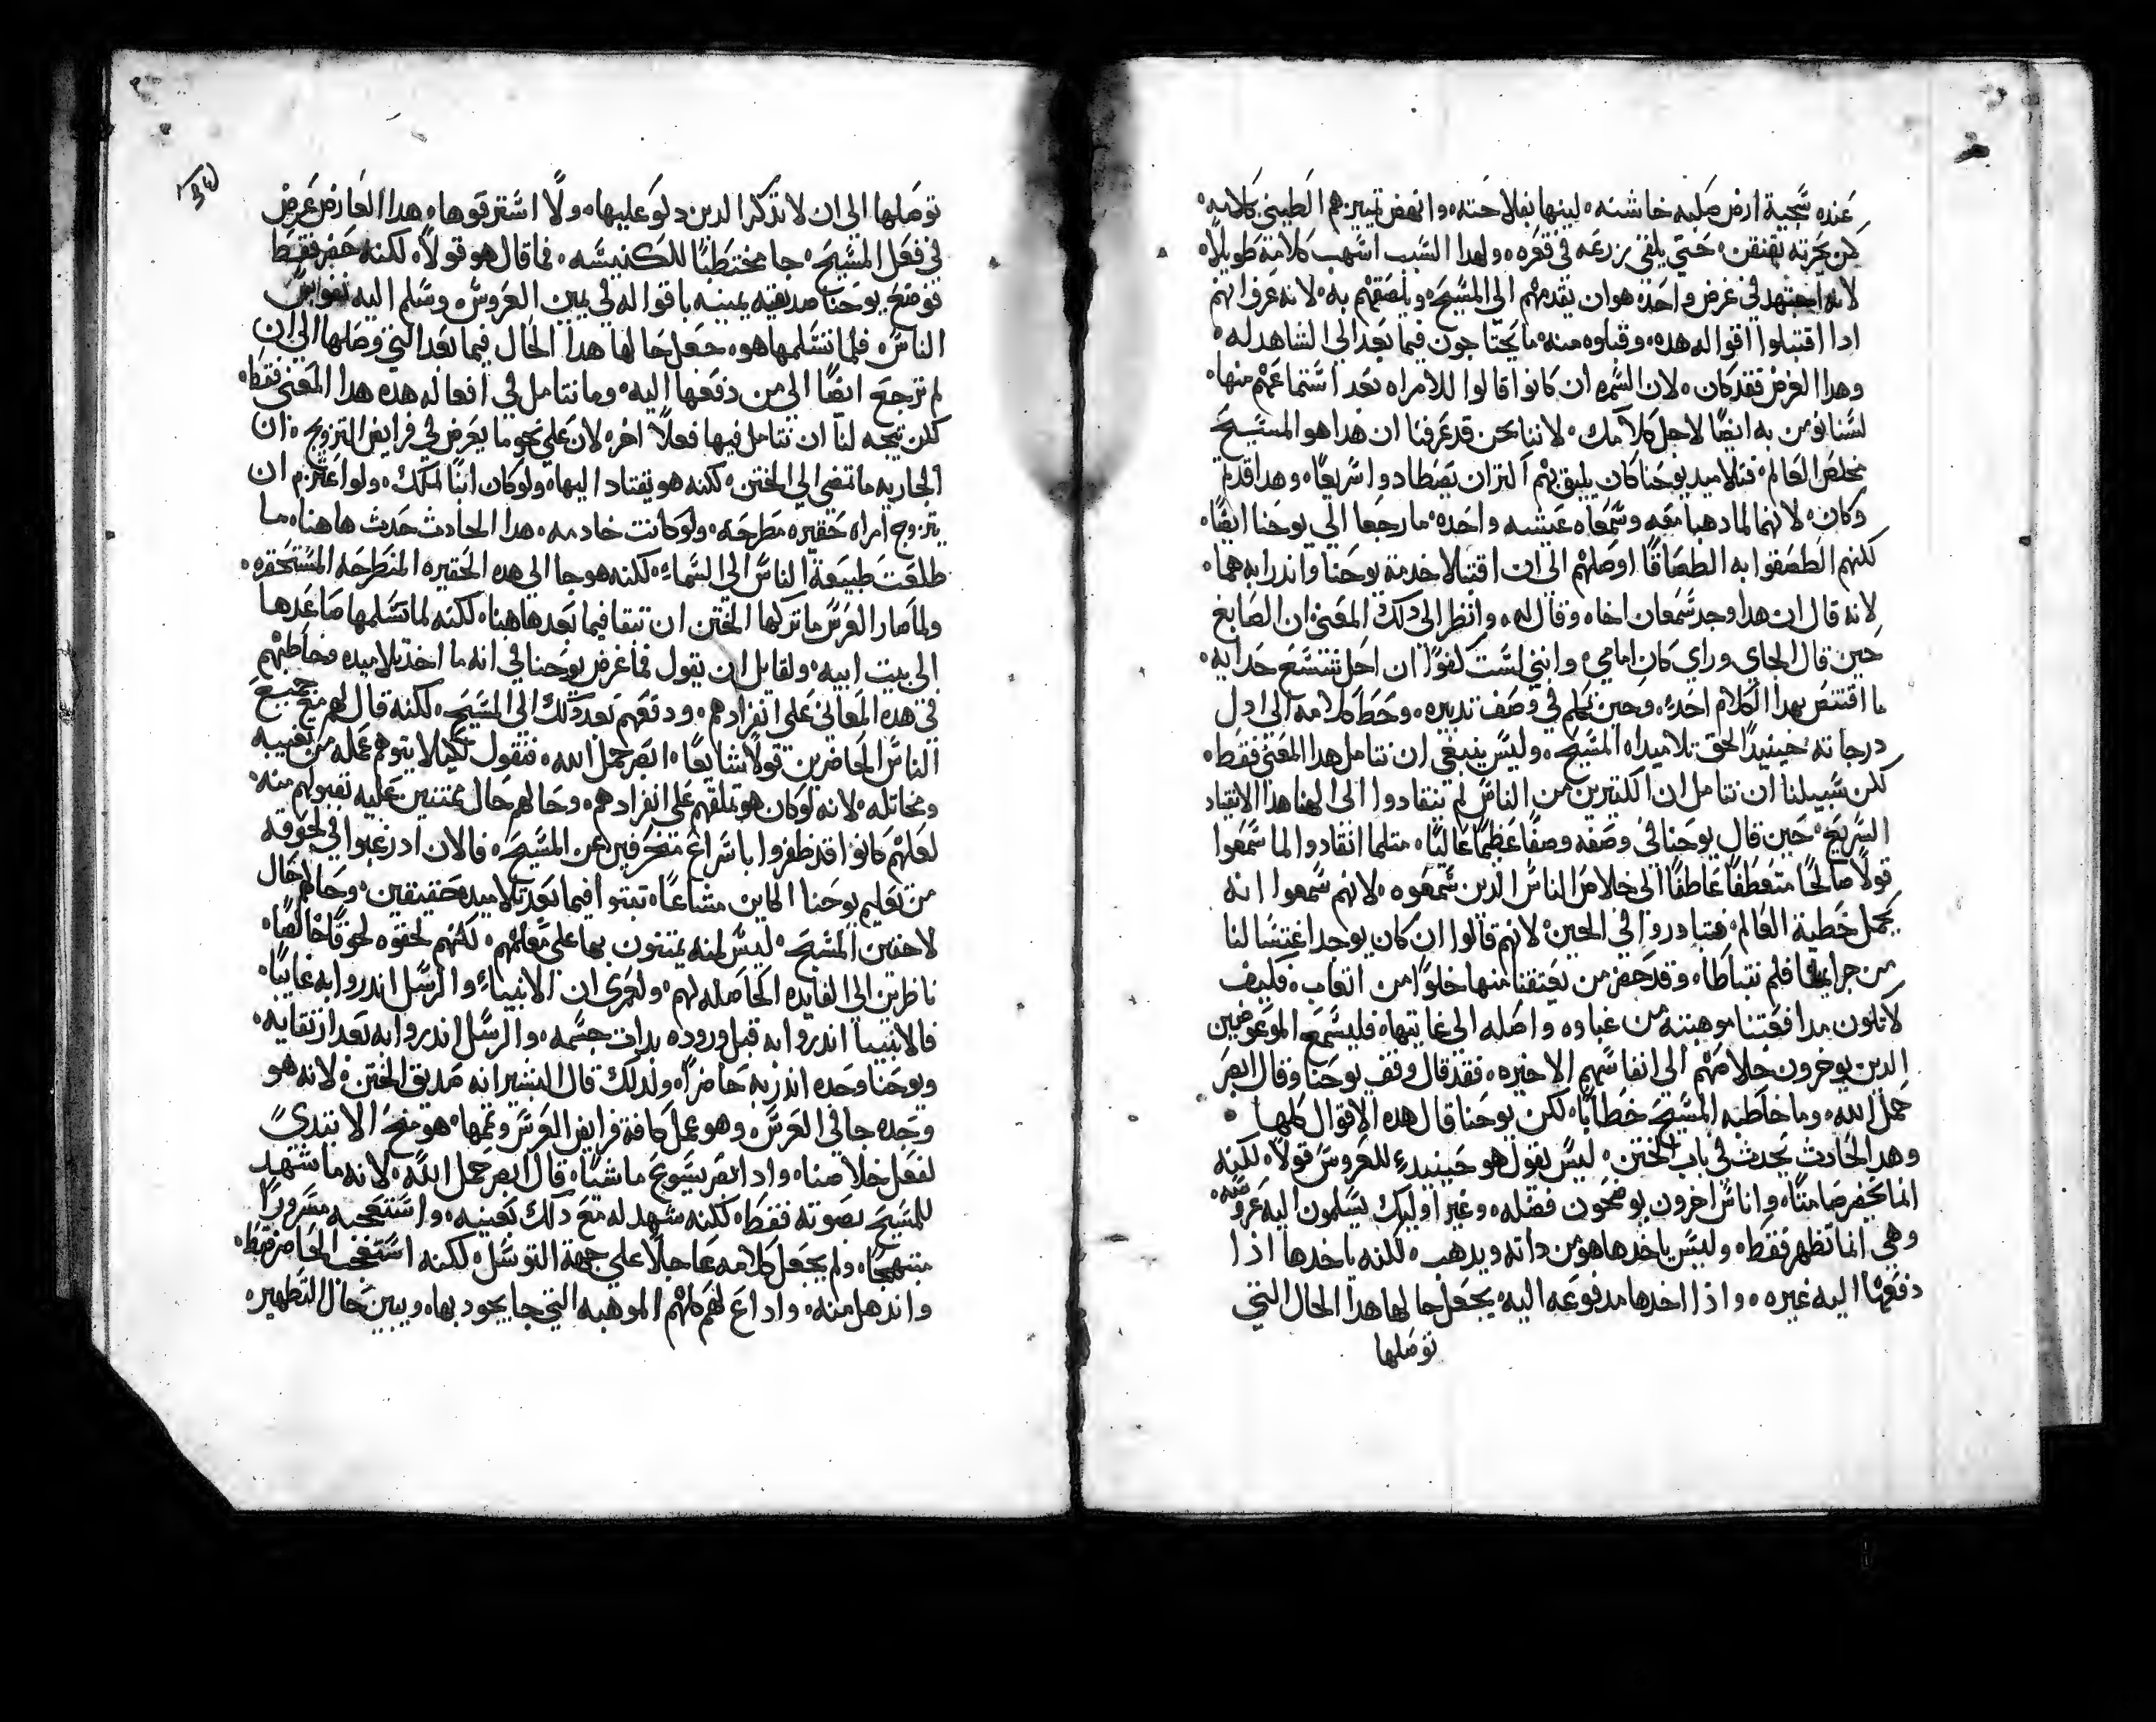 عنده سجية ارض صلبه خاشنه، لينها بفلاحته، وانهض تمييزهم الطيني كلامه،
كمن بحرته تقنقن، حتي يلقي زرعه في قعره، ولهدا السبب اسهب كلامه طويلاً،
لانه اجتهد في غرض واحد، هو ان يقدمهم الي المسيح، ويلصقهم به، لانه عرف انهم
ادا اقتبلوا اقواله هده، وقبلوه منه، ما يحتاجون فيما بعد الي الشاهد له،
وهدا الغرض فقد كان، لان السمره ان كانوا قالوا للامراه بعد استماعهم منها،
لسنا نومن به ايضًا لاجل كلامك، لاننا نحن قد عرفنا ان هدا هو المسيح
مخلص العالم، فتلاميد يوحنا كان يليق بهم اكتر ان يصطادوا سريعًا، وهدا قد تم
وكان، لانهما لما دهبا معه وسمعاه عيشه واحده، ما رجعا الي يوحنا ايضًا،
لكنهم الطصقوا به الطصاقًا اوصلهم الي ان اقتبلا خدمة يوحنا واندرا به هما،
لانه قال ان هدا وجد سمعان اخاه وقال له، وانظر الي دلك المعني ان الصابغ
حين قال الجاي وراي كان امامي، وانني لست كفوًا ان احل شسع حدايه،
ما اقتنص بهدا الكلام احدً، وحين تكلم في وصف تدبيره، وحط كلامه الي اول
درجاته حينيدًا لحق تلاميداه المسيح، وليس ينبغي ان نتامل هدا المعني فقط،
لكن سبيلنا ان نتامل ان الكتيرين من الناس لم ينقادوا الي الهنا هدا الانقياد
السريع، حين قال يوحنا في وصفه وصفًا عظيمًا عاليًا، متلما انقادوا لما سمعوا
قولًا صالحًا متعطفًا عاطفًا الي خلاص الناس الدين سمعوه، لانهم سمعوا انه
يحمل خطية العالم، فتبادروا في الحين، لانهم قالوا ان كان يوجد اغتسالنا
من جرايمنا فلم نتباطا، وقد حضر من يعتقنا منها خلوًا من اتعاب، فكيف
لا تكون مدافعتنا موهبته من غباوه واصله الي غايتها، فليسمع الموعوظين
الدين يوخرون خلاصهم الي انفاسهم الاخيره، فقد قال وقف يوحنا وقال ابصر
حمل الله، وما خاطبه المسيح خطابًا، لكن يوحنا قال هده الاقوال كلها،
وهدا الحادث يحدث في باب الختن، ليس يقول هو حينيدٍ للعروس قولاً، لكنه
انما يحضر صامتًا، واناس اخرون يوضحون فضله، وغير اوليك يسلمون اليه عروسه،
وهي انما تظهر فقط، وليس ياخدها هو من داته ويدهب، لكنه ياخدها ادا
دفعها اليه غيره، وادا اخدها مدفوعه اليه، يجعل حالها هدا الحال التي
توصلها
توصلها الي ان لا تدكر الدين دلو عليها، ولا استرقوها، هدا العارض عرض
في فعل المسيح، جا مختطبًا للكنيسه، فما قال هو قولاً، لكنه حضر فقط
فوضع يوحنا صديقه يمينه باقواله في يمين العروس، وسلم اليه نفوس
الناس، فلما تسلمها هو، جعل حالها هدا الحال فيما بعد التي وصلها الي ان
لم ترجع ايضًا الي من دفعها اليه، وما نتامل في افعاله هده هدا المعني فقط،
لكن يتجه لنا ان نتامل فيها فعلاً اخر، لان علي نحو ما يعرض في فرايض التزويج، ان
الجاريه ما تمضي الي الختن، لكنه هو يقتاد اليها، ولو كان ابنًا لملك، ولو اعتزم ان
يتزوج امراه حقيره مطرحه، ولو كانت خادمه، هدا الحادث حدث هاهنا، ما
طلعت طبيعة الناس الي السماء، لكنه هو جا الي هده الحقيره المنطرحه المستحقره،
ولما صار العرس ما تركها الختن ان تبقا فيما بعد هاهنا، لكنه لما تسلمها صاعدها
الي بيت ابيه، ولقايل ان يقول فما غرض يوحنا في انه ما اخد تلاميده وخاطبهم
في هده المعاني علي انفرادهم، ودفعهم بعد دلك الي المسيح، لكنه قال لهم مع جميع
الناس الحاضرين قولاً شايعًا، ابصر حمل الله، فنقول لكيلا يتوهم عمله من تعبيه
ومخاتله، لانه لو كان هو تملقهم علي انفرادهم، وحالهم حال ممتنين عليه بقبولهم منه،
لعلهم كانوا قد ظفروا باسراع منحرفين عن المسيح، فالان اد رغبوا في لحوقه
من تعليم يوحنا الكاين مشاعًا، تبتوا فيما بعد تلاميده حقيقين، وحالهم حال
لاحقين المسيح، ليس لمنه يمتنون بها علي معلمهم، لكنهم لحقوه لحوقًا خالصًا،
ناظرين الي الفايده الحاصله لهم، ولعمري ان الانبياء والرسل اندروا به غايبًا،
فالانبيا اندروا به قبل وروده بدات جسمه، والرسل اندروا به بعد ارتقايه،
ويوحنا وحده اندر به حاضرًا، ولدلك قال البشير انه صديق الختن، لانه هو
وحده جا في العرس، وهو عمل كافة فرايض العرس وتممها، هو منح الابتدي
لفعل خلاصنا، وادا بصر يسوع ماشيًا، قال ابصر حمل الله، لانه ما شهد
للمسيح بصوته فقط، لكنه شهد له مع دلك بعينيه، واستعجبه مسرورًا
مبتهجًا، ولم يجعل كلامه عاجلًا علي جهة التوسل، لكنه استعجب الحاضر فقط،
واندهل منه، واداع لهم كلهم الموهبه التي جا يجود بها، ويبين حال التطهير،